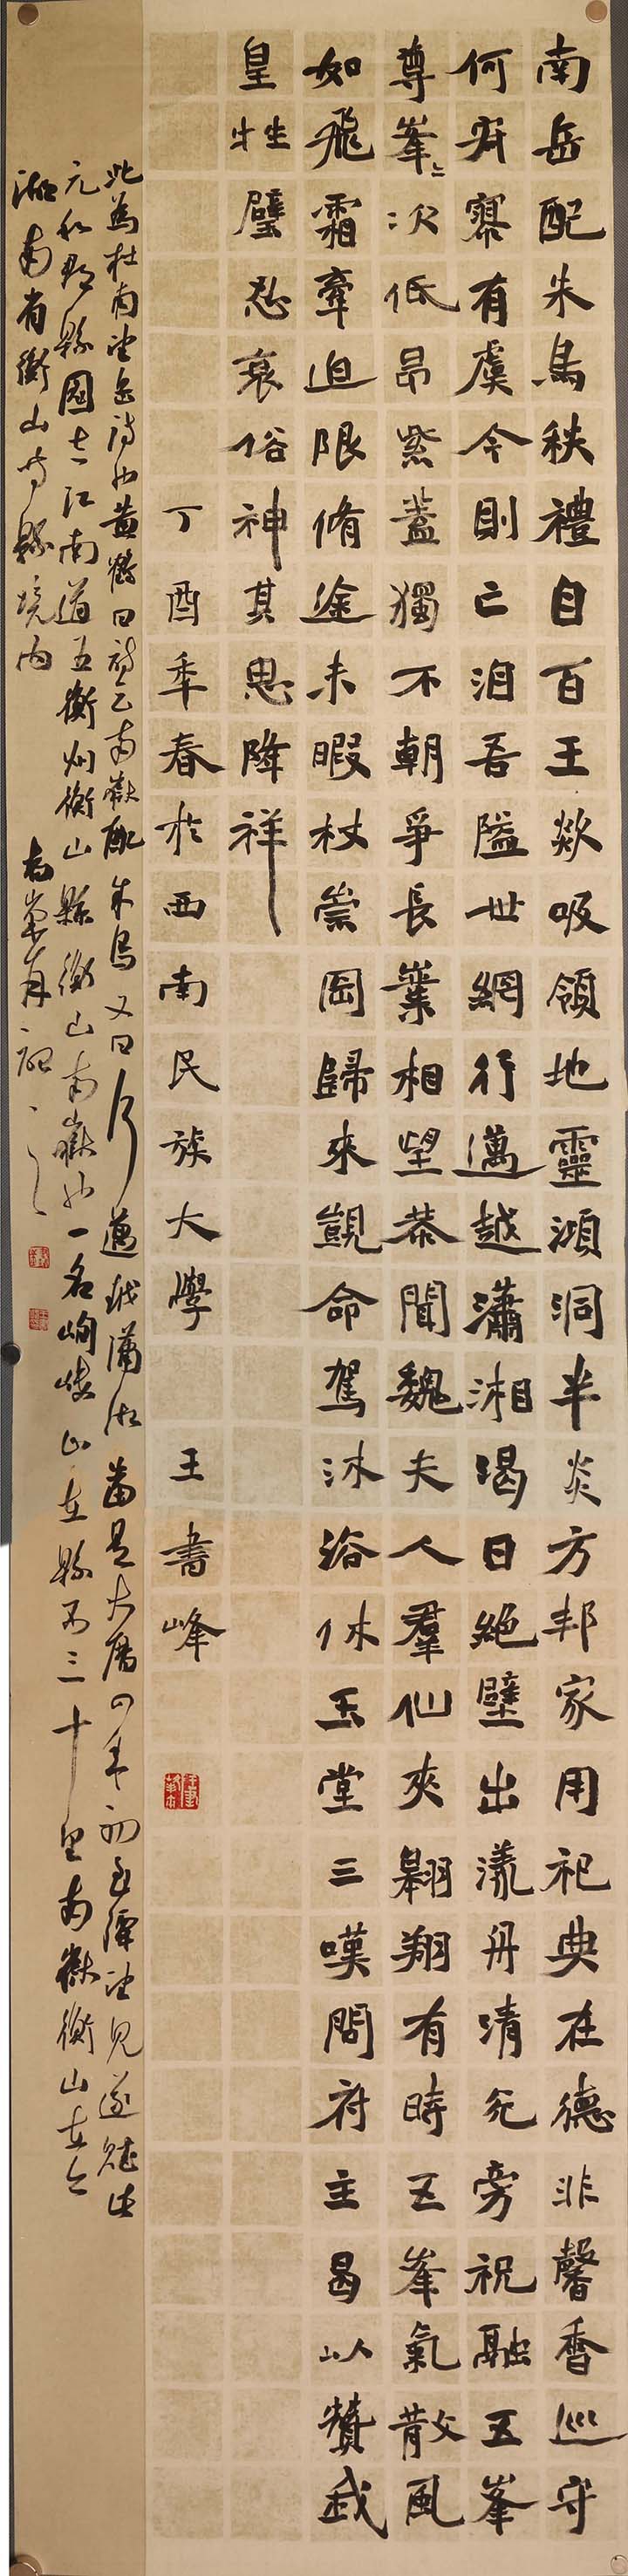 南岳配朱鳥秩禮自百王歘吸領地靈澒洞半炎方邦家用祀典在德非馨香巡守
何寂寥有虞今則亡洎吾隘世網行邁越瀟湘渴日絕壁出漾舟清光旁祝融五峯
尊峯〻次低昂紫蓋獨不朝爭長嶪相望恭聞魏夫人羣仙夾翱翔有時五峯氣散風
如飛霜牽迫限脩途未暇杖崇岡歸來覬命駕沐浴休玉堂三嘆問府主曷以贊我
皇牲璧忍衰俗神其思降祥
丁酉年春於西南民族大學 王書峰
此為杜甫望岳詩也黃鶴曰詩云南嶽配朱鳥又曰行邁越瀟湘當是大曆四年初至潭望見遂賦此
元和郡縣圖志江南道五衡州衡山縣衡山南嶽也一名岣嶁山在縣西三十里南嶽衡山在今
湖南省衡山等縣境內